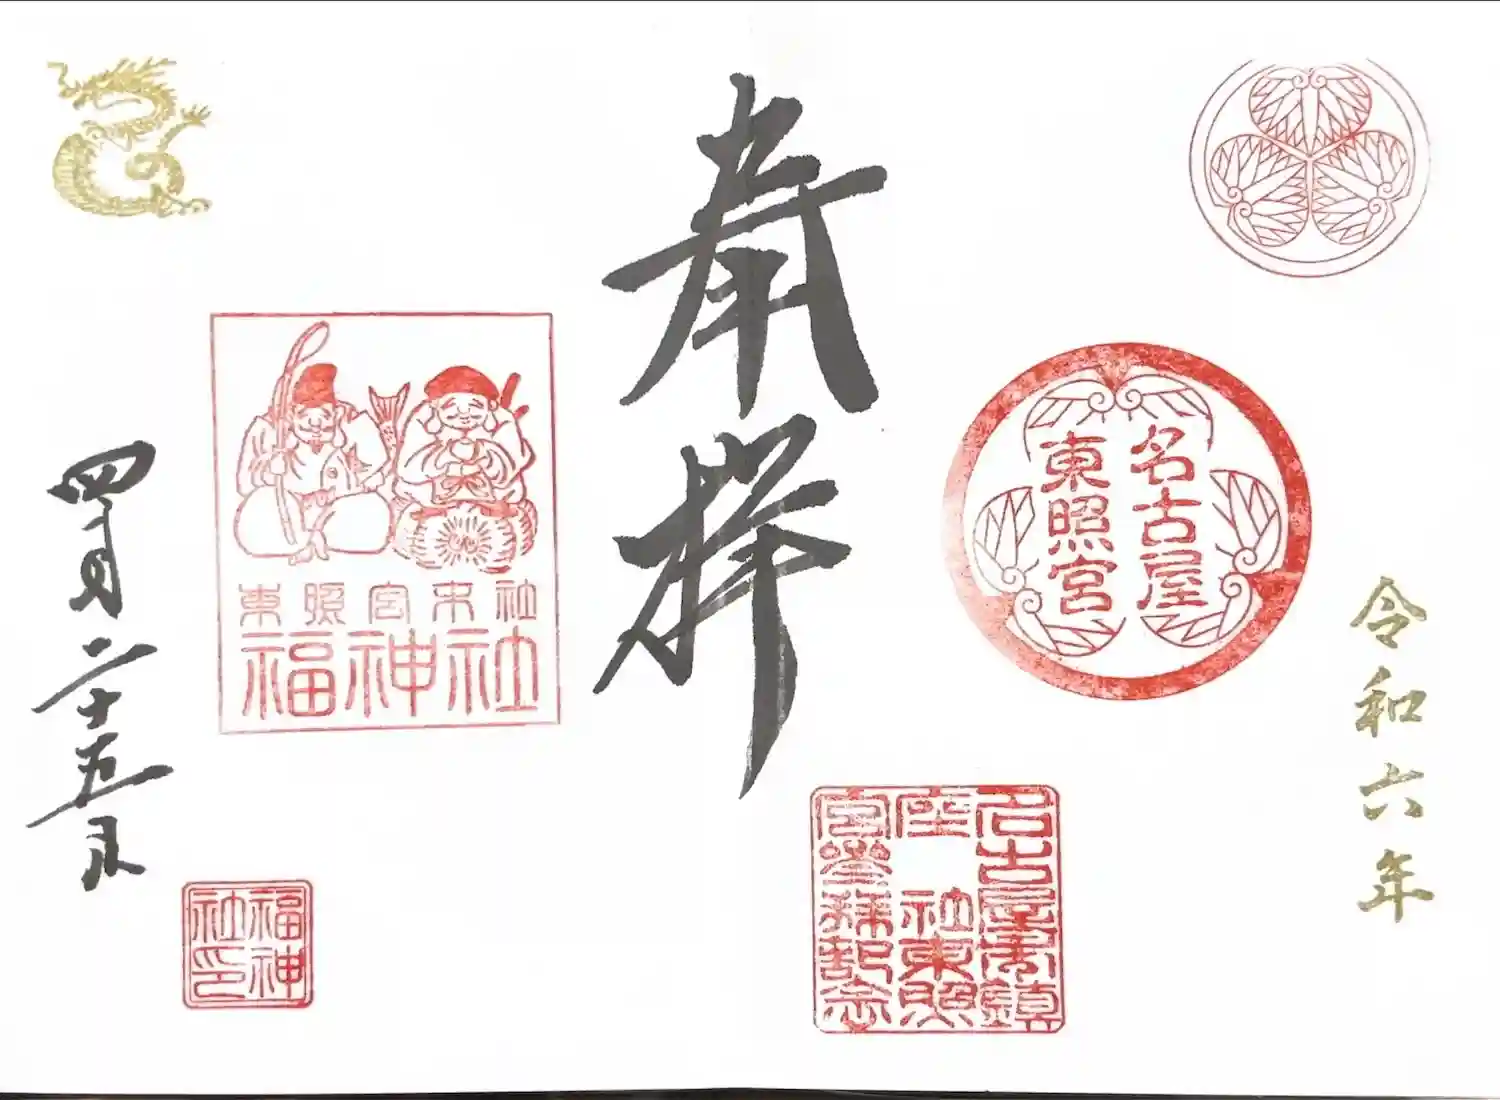 令和六年
名古屋
東照宮
名古屋鎮
座社東照
宮参拝記念
奉拝
東照宮末社
福神社
四月二十五日
福神
社印